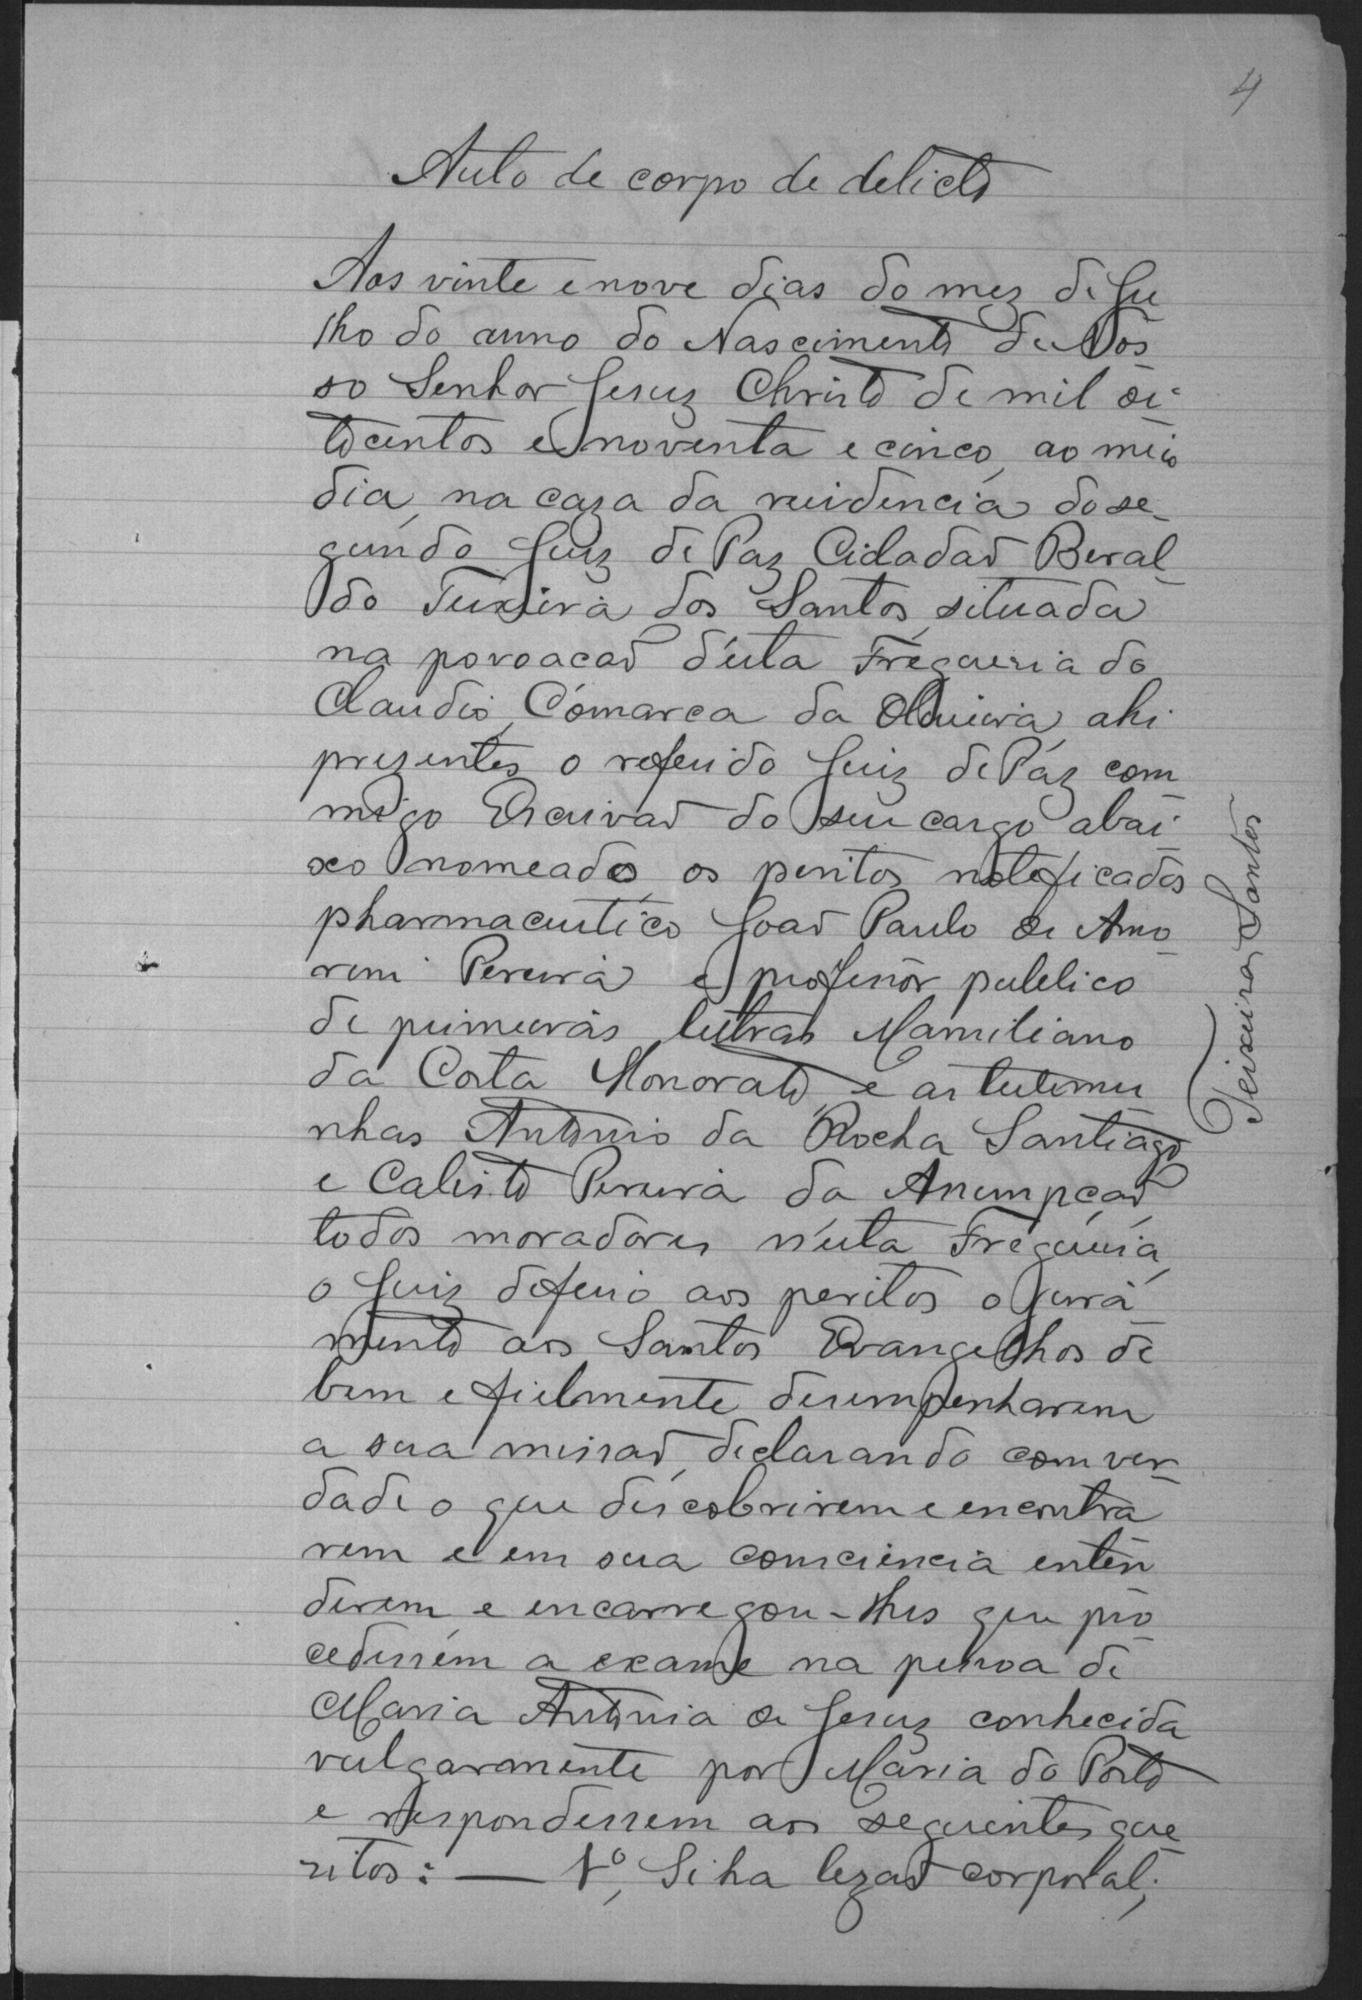 4
Auto de corpo de delicto
Aos vinte e nove dias do mez de Ju
lho do anno do Nascimento de Nos
so Senhor Jesuz Christo de mil oi-
tocentos e noventa e cinco, ao meio
dia, na caza da residencia do se-
gundo Juiz de Paz Cidadaõ Beral-
do Teixeira dos Santos, situada
na povoacaõ d'esta Freguesia do
Claudio, Comarca da Oliveira, ahi
prezentes o referido Juiz de Paz com
migo Escrivaõ do seu cargo abai
xo nomeado, os peritos notificados
pharmaceutico Joaõ Paulo de Amo
rim Pereira e professor publico
de primeiras lettras Mamiliano
da Costa Honorato, e as testemu
nhas Antonio da Rocha Santiago
e Calisto Pereira da Anumpcaõ
todos moradores n'esta Freguesia,
o Juiz deferio aos peritos o jura
mento aos Santos Evangelhos de
bem e fielmente desempenharem
a sua missaõ, declarando com ver-
dade o que descobrirem e encontra
rem e em sua consciencia enten
derem e encarregou-lhes que pro
cedessem a exame na pessoa de
Maria Antonia de Jesuz conhecida
vulgarmente por Maria do Porto
e respondessem aos seguintes que
zitos: — 1º, Si ha lezaõ corporal;
Teixeira Santos